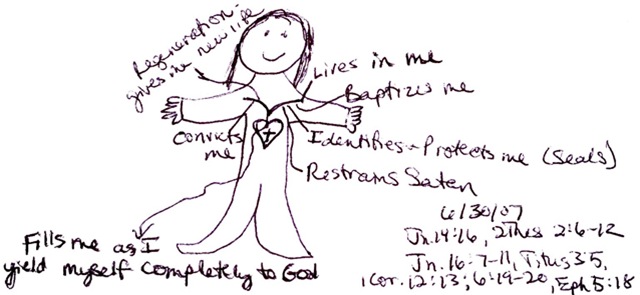 Regeneration-
gives me new life
Lives in me
Baptizes me
Convicts
me
Identifies - Protects me (Seals)
Restrains Saten
Fills me as I
yield myself completely to God
6/30/07
Jn.14:16, 2Thes 2:6-12
Jn. 16:7-11, Titus 3:5,
1 Cor. 12:13; 6:19-20, Eph 5:18